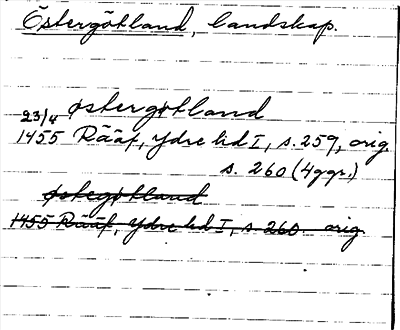 Östergötland, landskap.
østergøtland
23/4
1455 Rääf, Ydre hd I, s. 259, orig
s. 260 (4 ggr.)
østegøtland
1455 Rääf, Ydre hd I, s. 260 orig